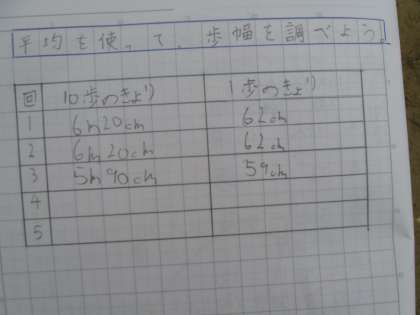 平均を使って、歩幅を調べよう。
回 10歩のきょり 1歩のきょり
1 6m20cm 62cm
2 6m20cm 62cm
3 5m90cm 59cm
4
5